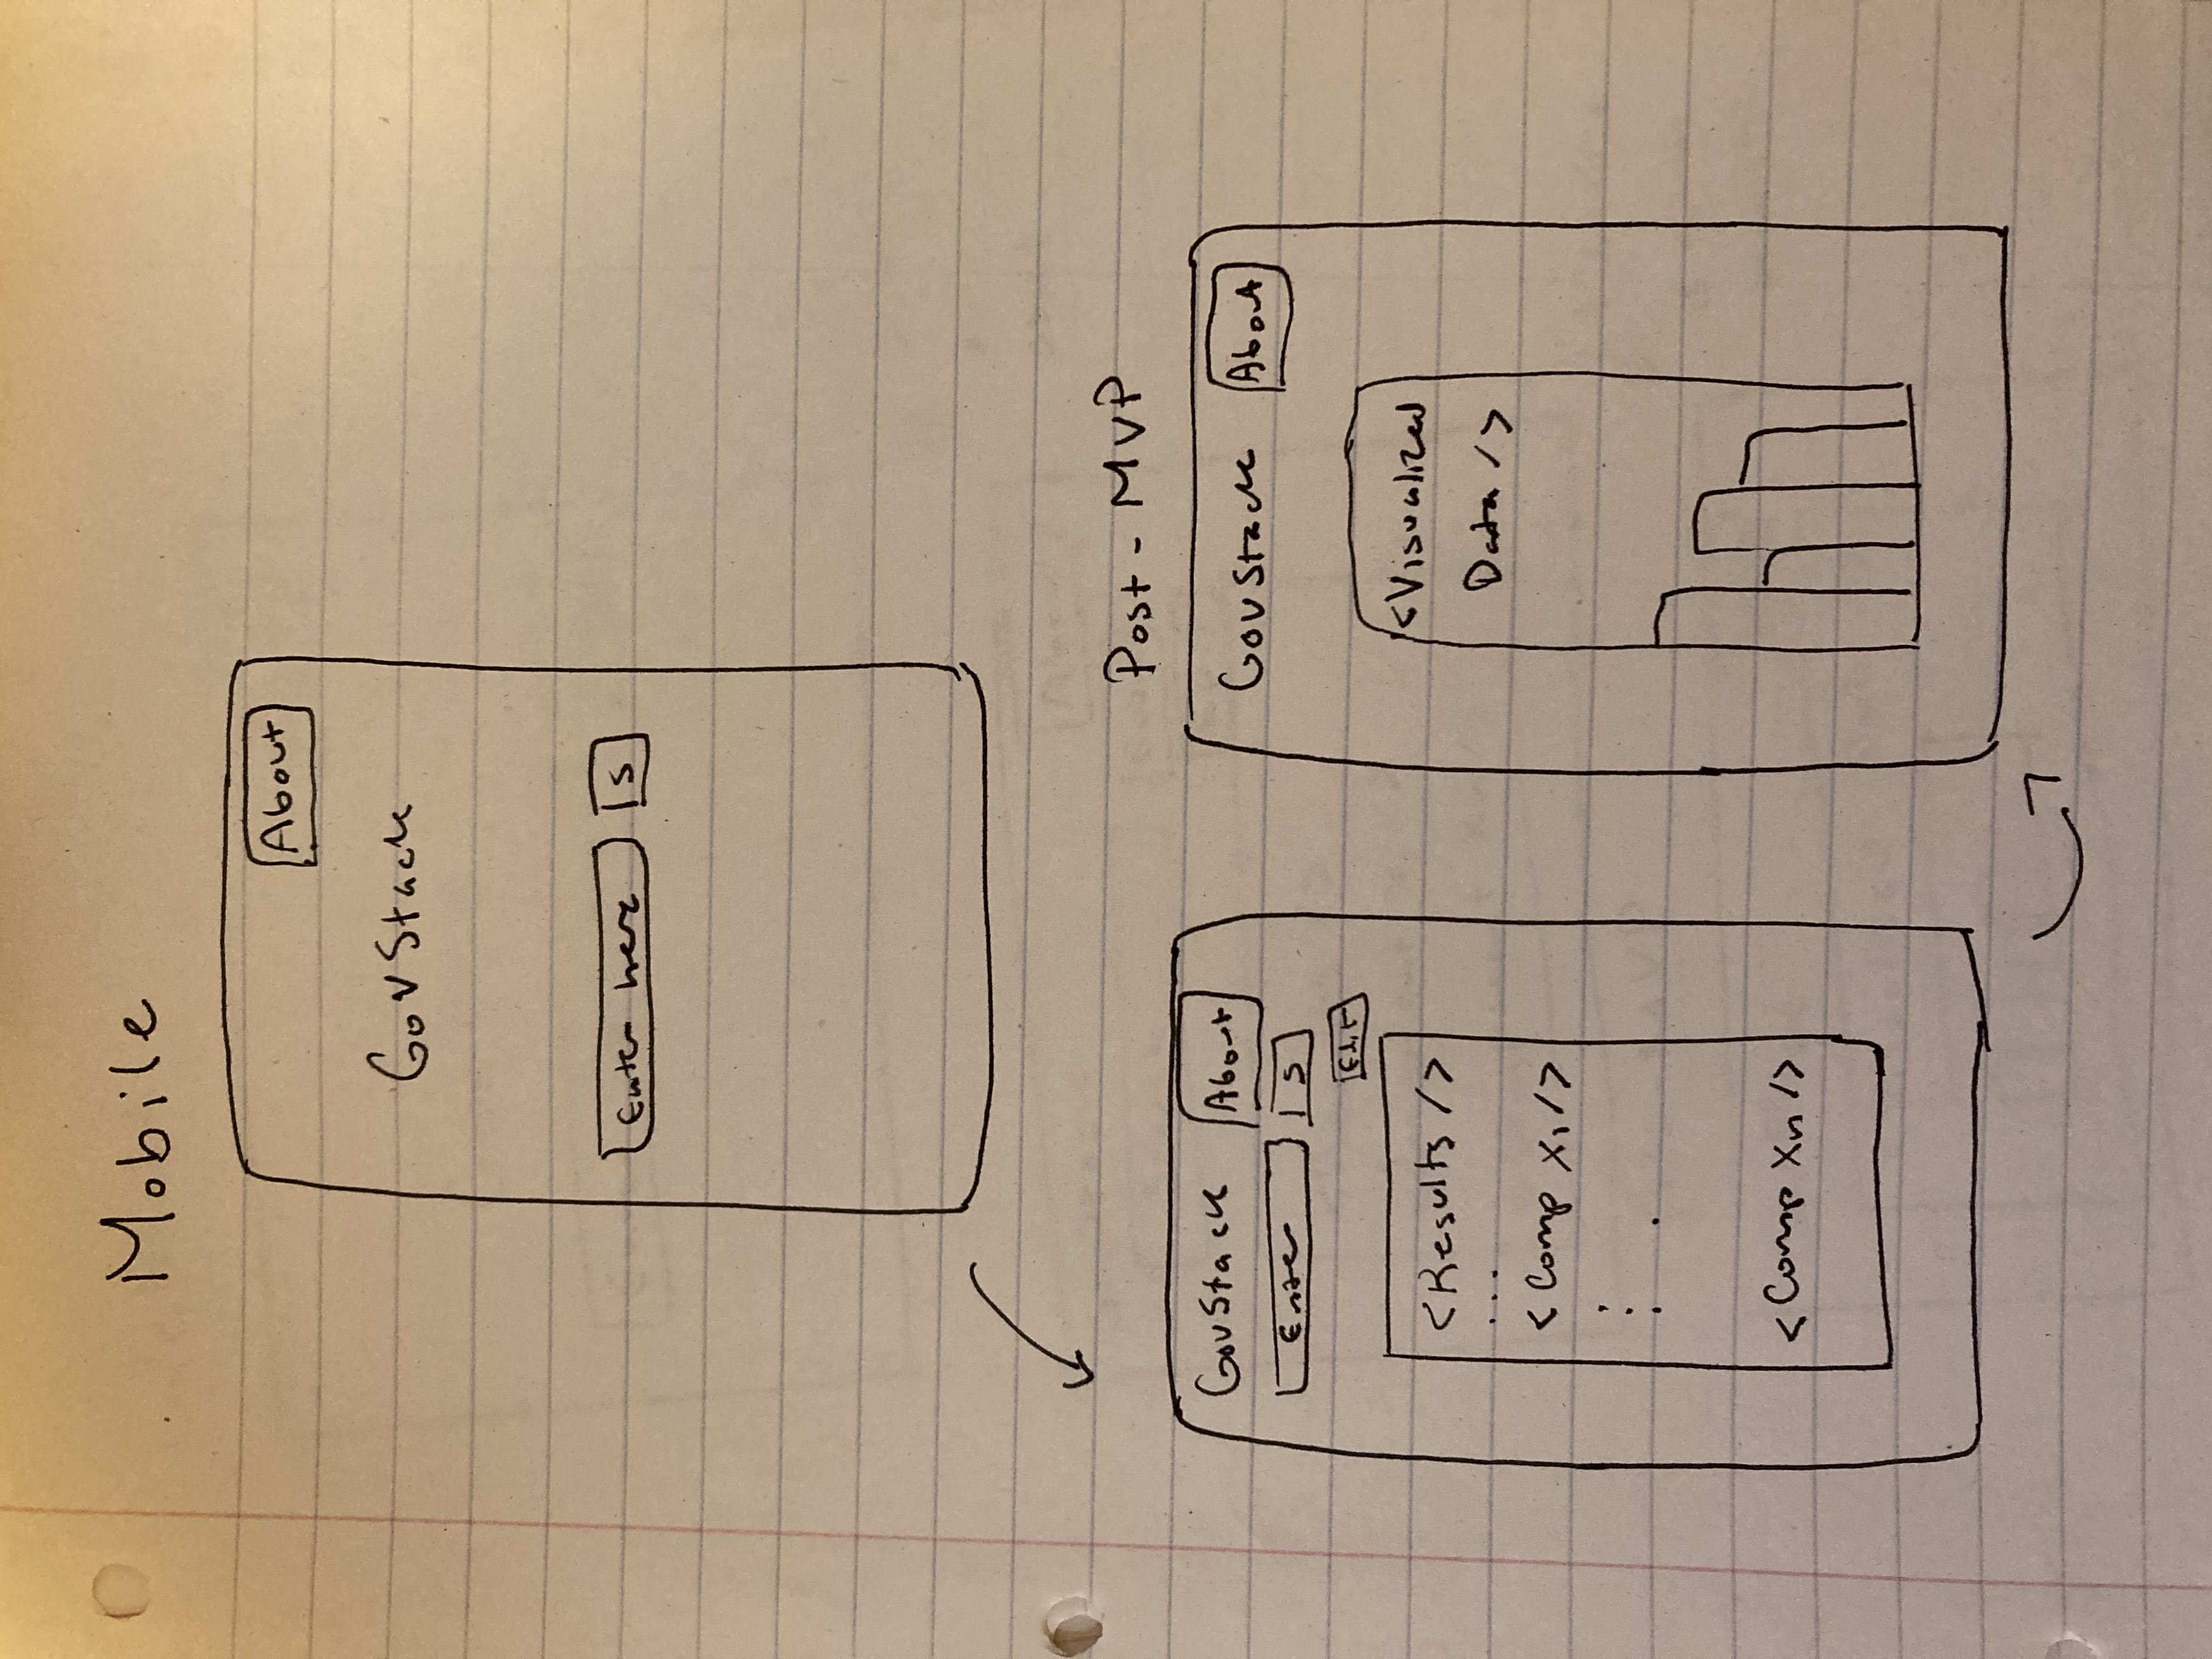 Mobile
About
GovStack
Enter here S
Post - MVP
GovStack About
Enter S
Edit
<Results />
...
<Comp X1 />
<Comp Xn />
GovStack About
<Visualized
Data />